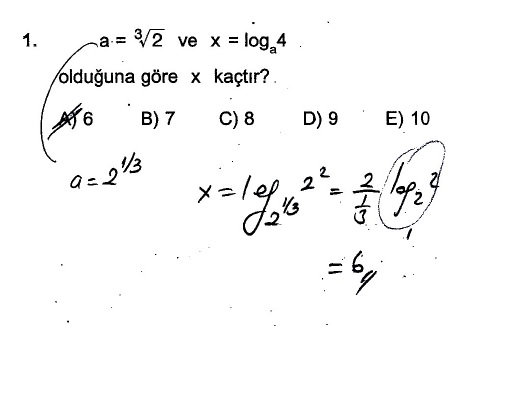 1. a = ∛2 ve x = logₐ4
olduğuna göre x kaçtır?
A) 6 B) 7 C) 8 D) 9 E) 10
a = 2^1/3 x = log_{2^1/3} 2² = 2/(1/3) log₂ 2
1
= 6,,